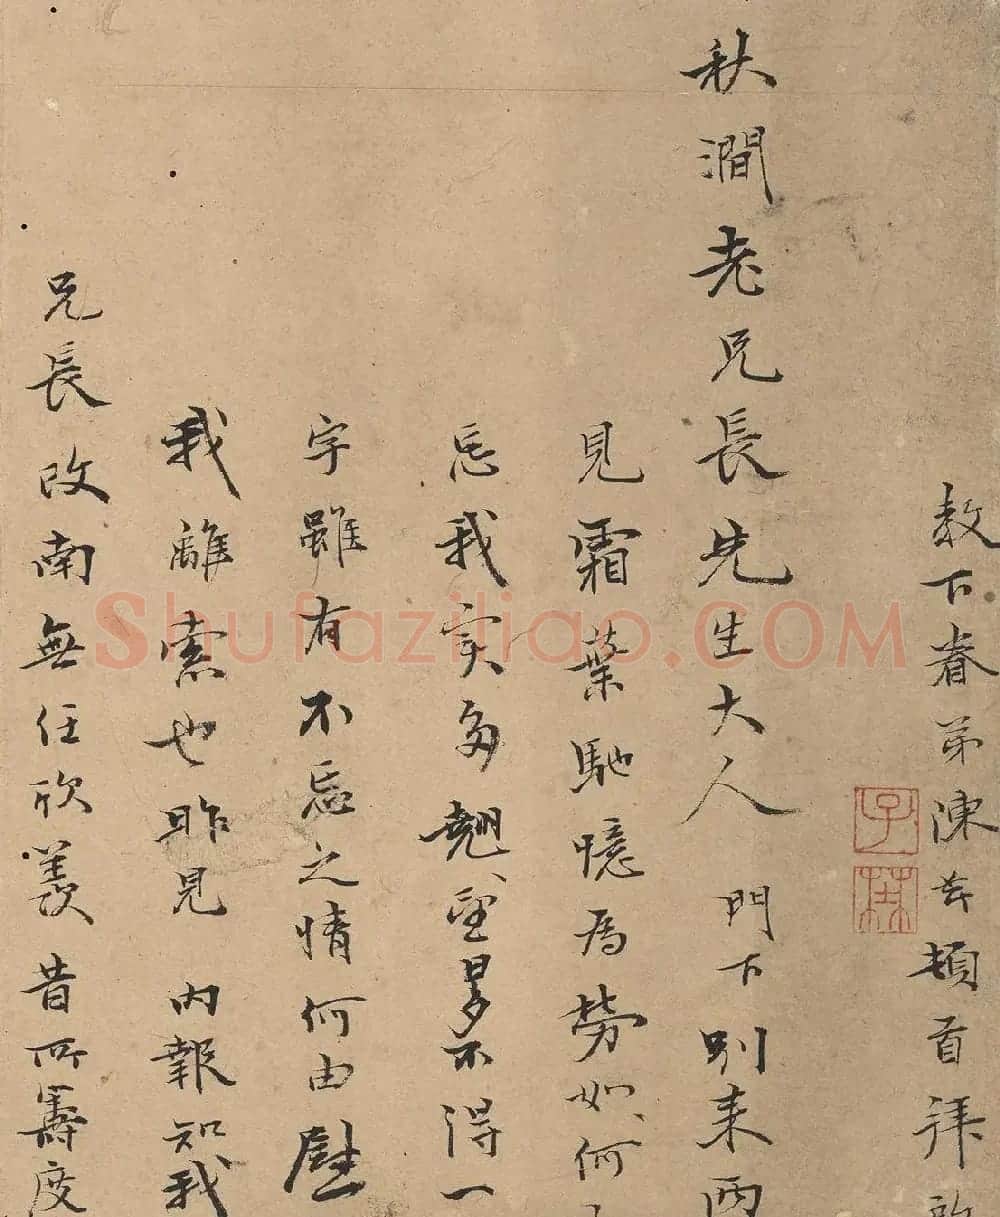 教下眷弟陳芹頓首拜
子埜
秋澗老兄長先生大人 門下別来兩
見霜葉馳憶為勞如何
忘我实多翹望不得一
字雖有不忘之情何由慰
我離索也昨見 内報知我
兄長改南無任欣羨昔所籌度
Shufaziliao.COM